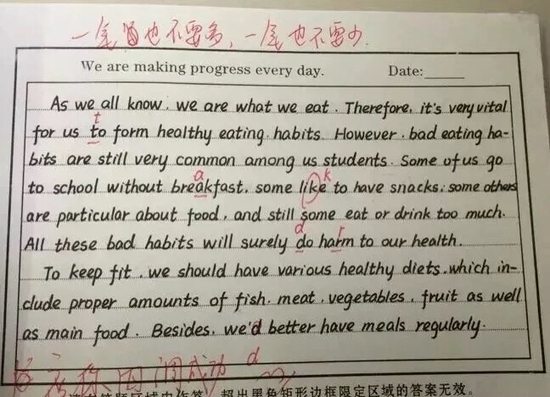 一笔画也不要多,一笔也不要少.
We are making progress every day. Date:
As we all know, we are what we eat. Therefore, it's very vital
t
for us to form healthy eating habits. However, bad eating ha-
bits are still very common among us students. Some of us go
a k
to school without breakfast, some like to have snacks; some others
are particular about food, and still some eat or drink too much.
d r
All these bad habits will surely do harm to our health.
To keep fit, we should have various healthy diets, which in-
clude proper amounts of fish, meat, vegetables, fruit as well
as main food. Besides, we'd better have meals regularly.
d
超出黑色矩形边框限定区域的答案无效。